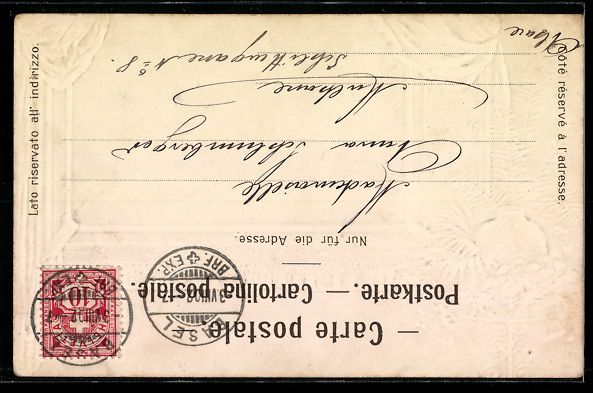 — Carte postale. —
Postkarte. — Cartolina postale.
Nur für die Adresse.
Côté réservé à l'adresse.
Lato riservato all' indirizzo.
Mademoiselle
Anna Schlumberger
Mulhouse
No 8.
Alsace
BASEL
BRF. EXP.
10